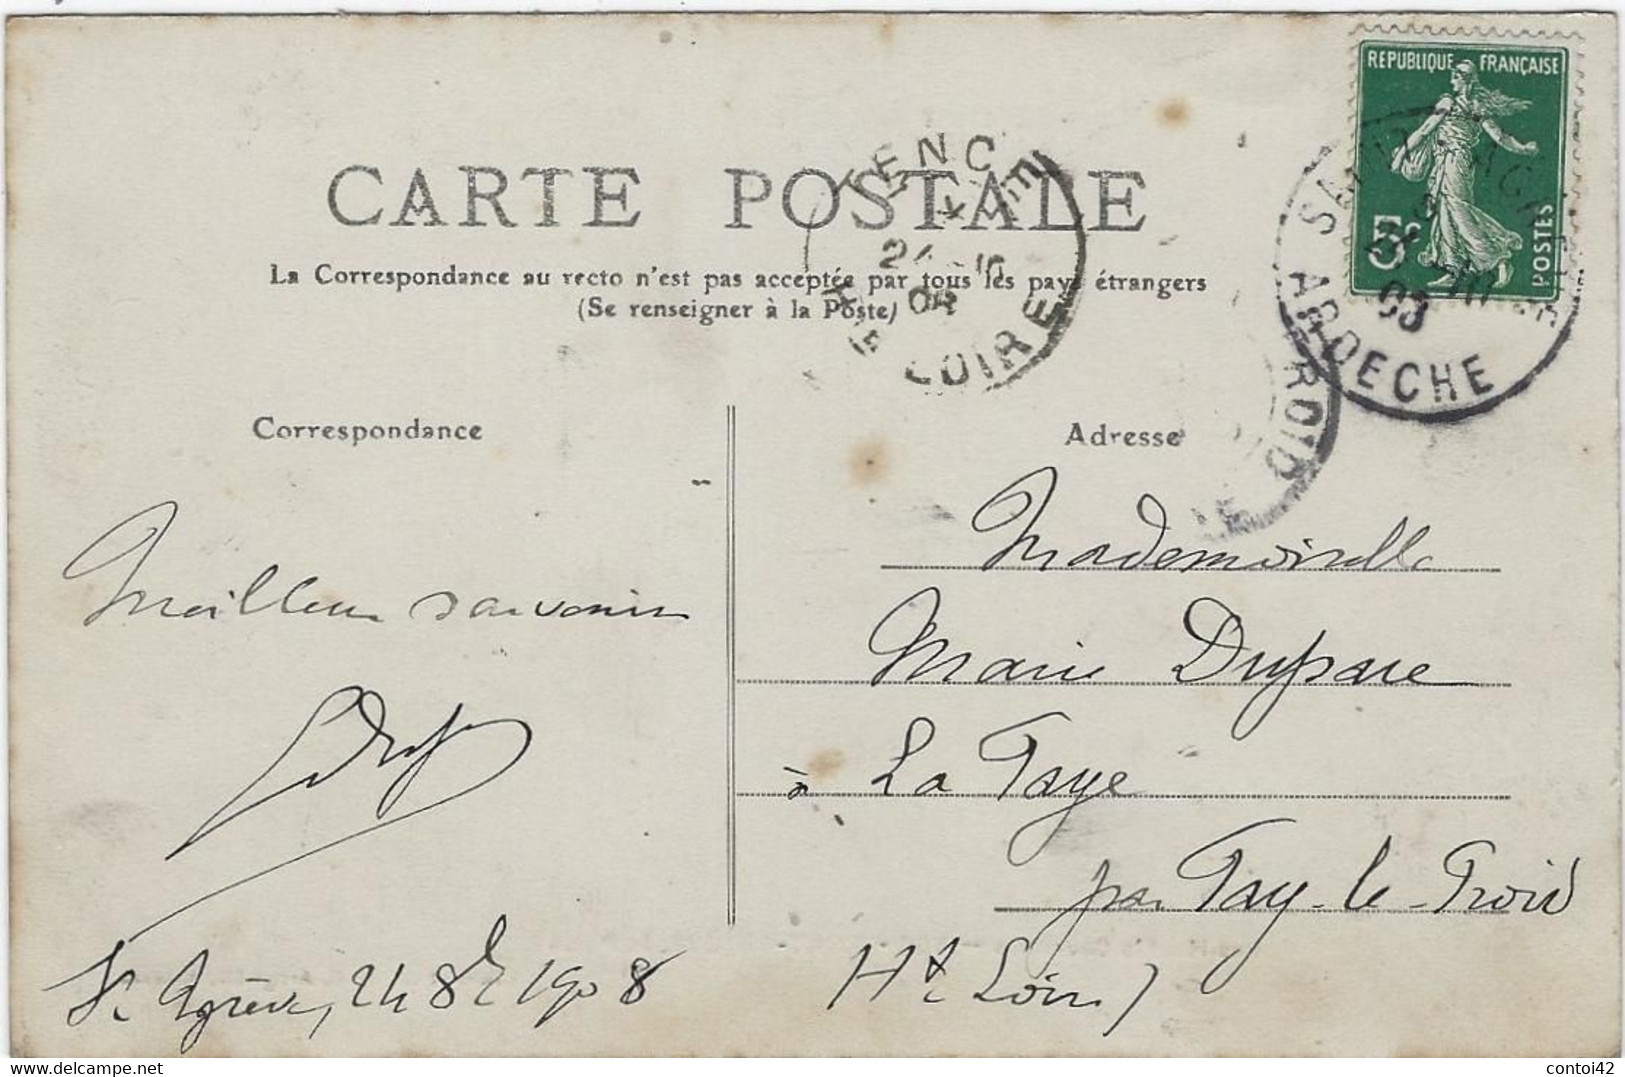 REPUBLIQUE FRANÇAISE
5c
POSTES
SAINT AGREVE
08
ARDECHE
TENCE
24
08
HTE LOIRE
LE FROID
CARTE POSTALE
La Correspondance au recto n'est pas acceptée par tous les pays étrangers
(Se renseigner à la Poste)
Correspondance
Meilleur souvenir
St Agrève, 24 8bre 1908
Adresse
Mademoiselle
Marie
à La Faye
par Fay-le-Froid
Hte Loire)
delcampe.net
contoi42